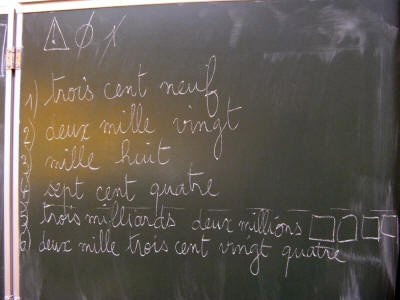 1) trois cent neuf
2) deux mille vingt
3) mille huit
4 sept cent quatre
5 trois milliards deux millions
6) deux mille trois cent vingt quatre